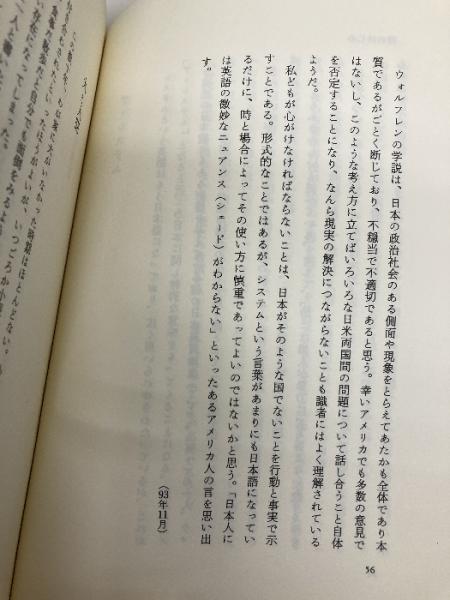 ウォルフレンの学説は、日本の政治社会のある側面や現象をとらえてあたかも全体であり本
質であるがごとく断じており、不穏当で不適切であると思う。幸いアメリカでも多数の意見で
はないし、このような考え方に立てばいろいろな日米両国間の問題について話し合うこと自体
を否定することになり、なんら現実の解決につながらないことも識者にはよく理解されている
ようだ。
私どもが心がけなければならないことは、日本がそのような国でないことを行動と事実で示
すことである。形式的なことではあるが、システムという言葉があまりにも日本語になってい
るだけに、時と場合によってその使い方に慎重であってよいのではないかと思う。「日本人に
は英語の微妙なニュアンス（シェード）がわからない」といったあるアメリカ人の言を思い出
す。
（93年11月）
56